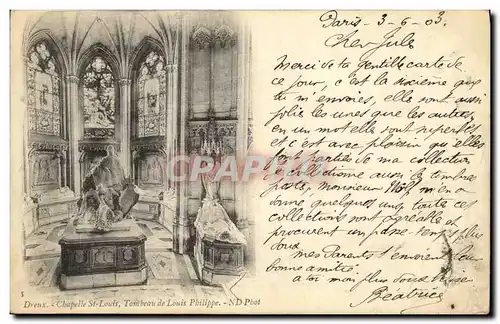 Paris - 3 - 6 - 03.
Cher Jules
Merci de ta gentille carte de
ce jour, c'est la sixième que
tu m'envoies, elles sont aussi
jolies les unes que les autres,
en un mot elles sont superbes
et c'est avec plaisir qu'elles
font parties de ma collection
collectionne aussi les timbres
postes, Monsieur m'en a
donné quelques uns, toute ce
collections sont agréable et
procurent un passe-temps plus
doux.
mes Parents t'envoient leur
bonne amitié
a toi mon plus doux
Béatrice
CPARAMA.COM
5
Dreux. - Chapelle St-Louis, Tombeau de Louis Philippe. - ND Phot